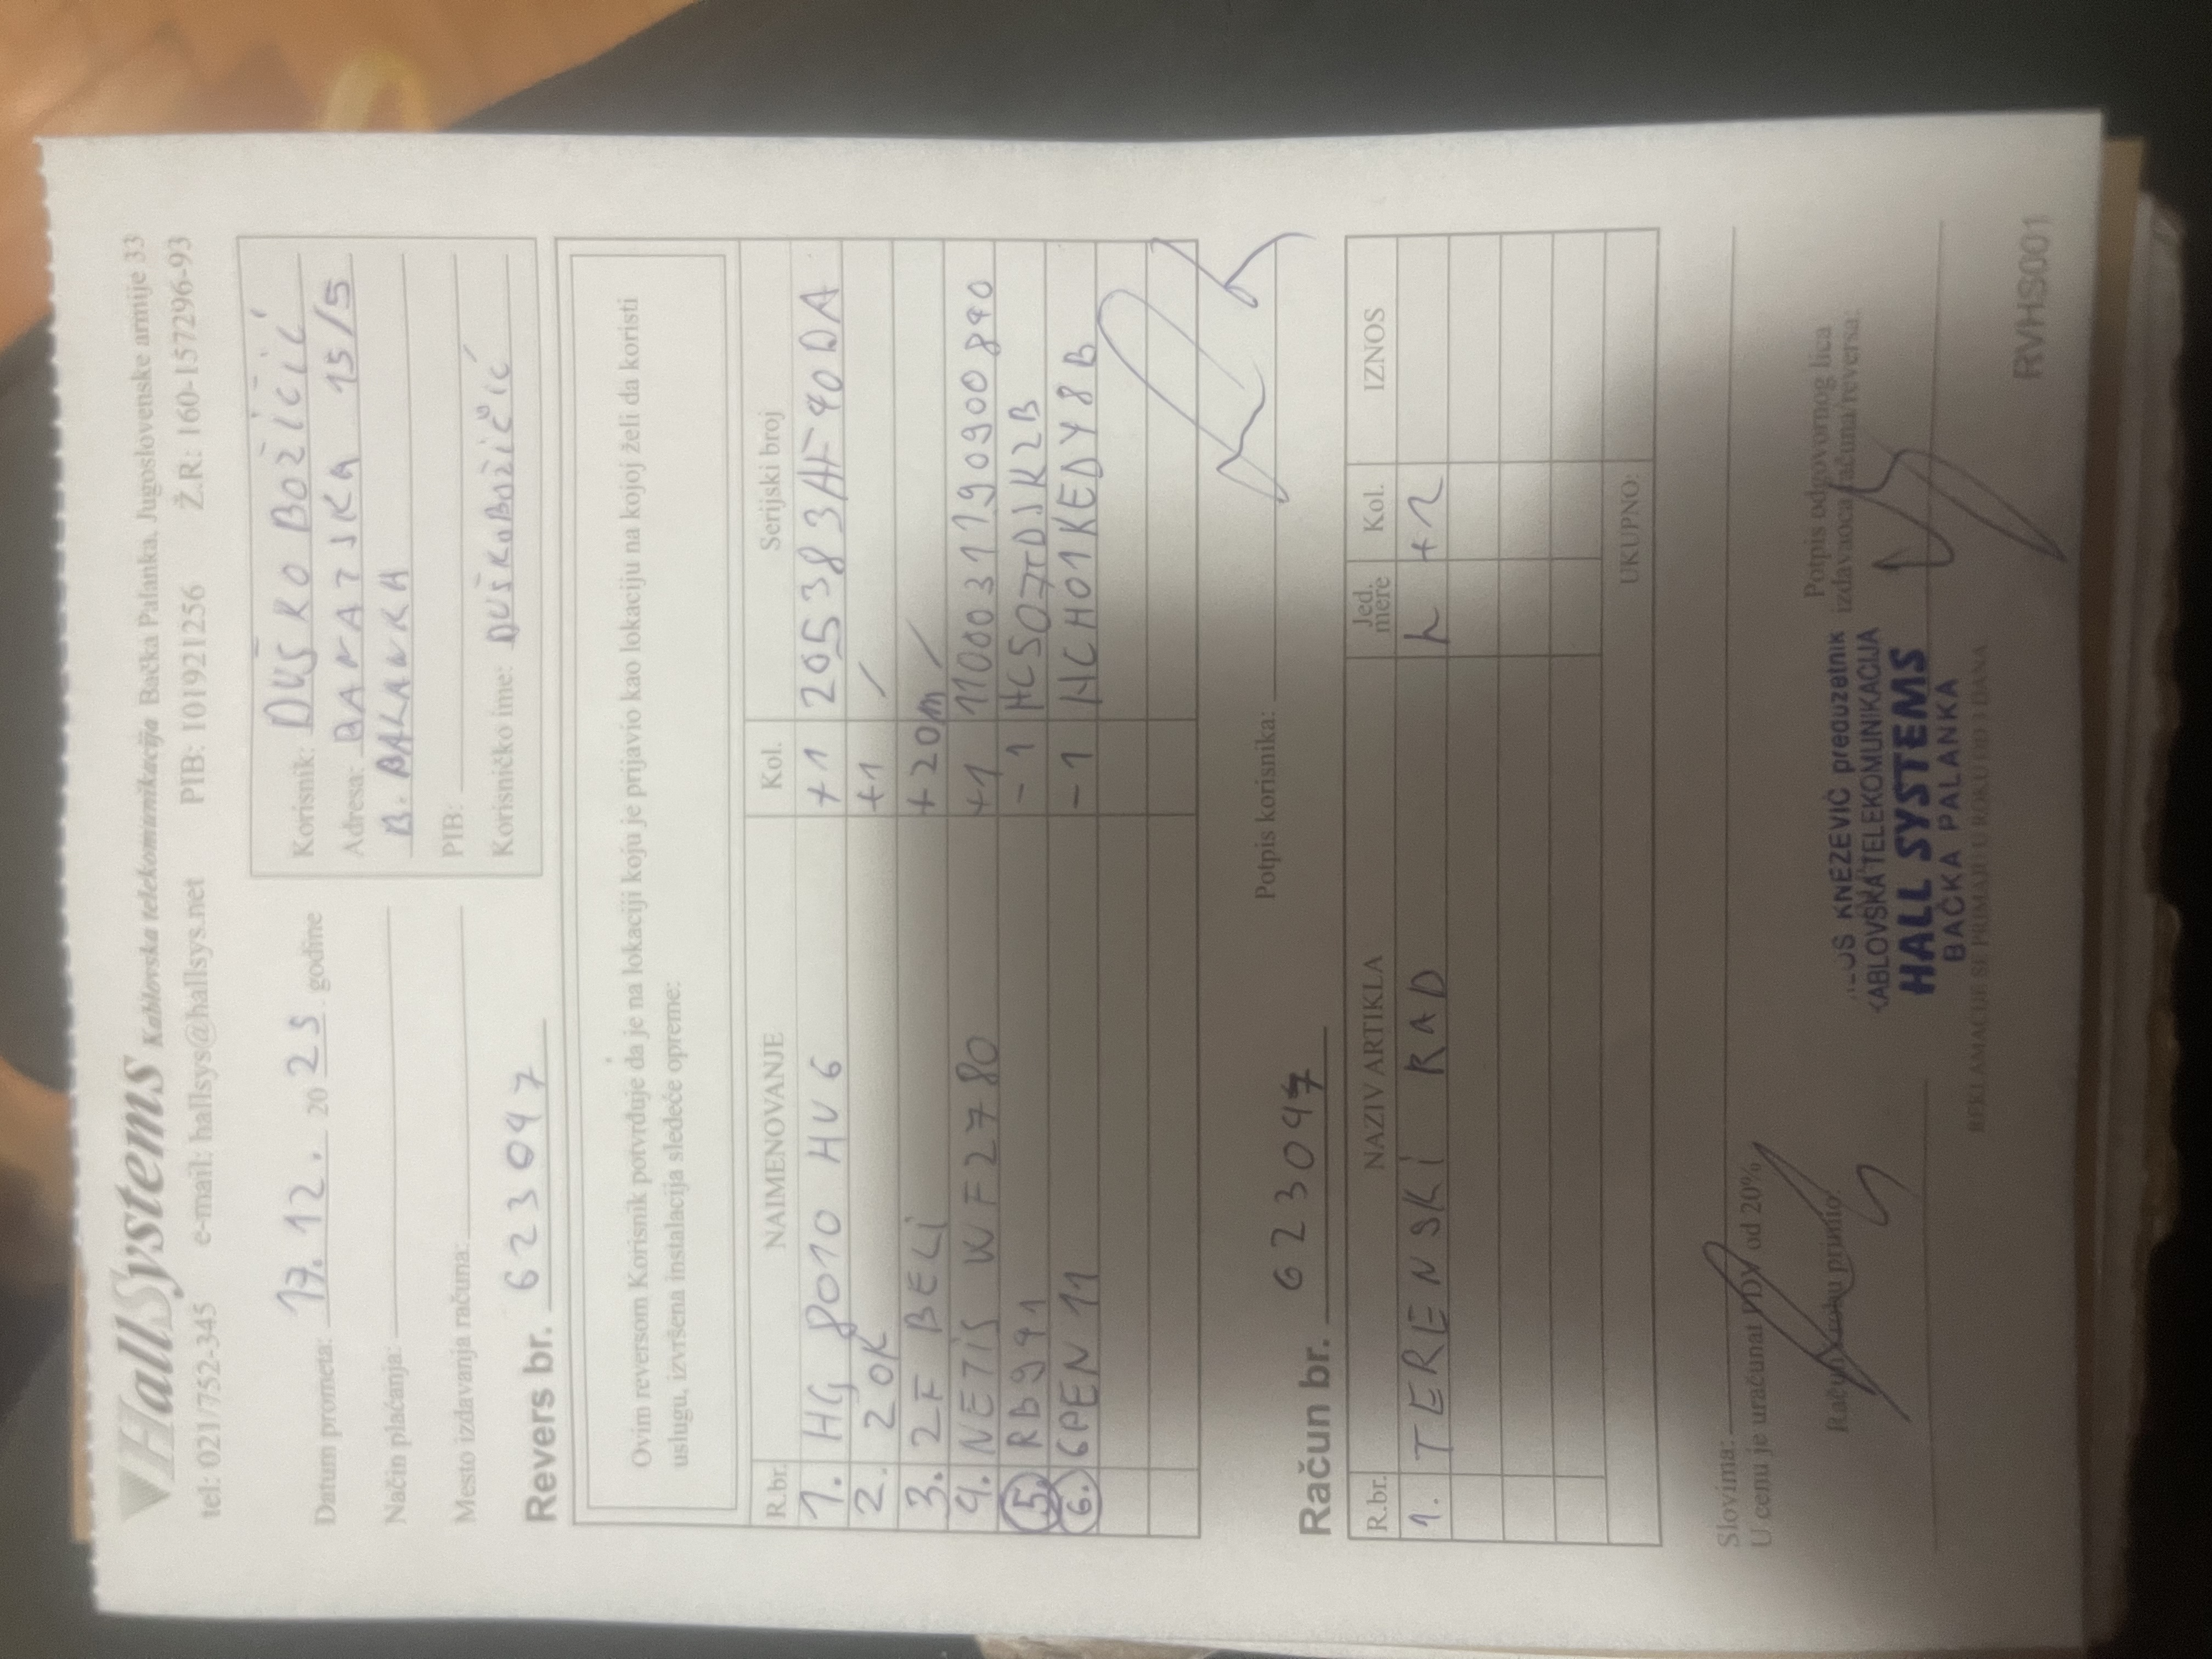 HallSystems Kablovska telekomunikacija Bačka Palanka, Jugoslovenske armije 33
tel: 021/752-345 e-mail: hallsys@hallsys.net PIB: 101921256 Ž.R.: 160-157296-93
Datum prometa: 17.12. 2025. godine
Način plaćanja:
Mesto izdavanja računa:
Korisnik: DUŠKO BOŽIČIĆ
Adresa: BANATSKA 15/5
B. PALANKA
PIB:
Korisničko ime: DUŠKOBOŽIČIĆ
Revers br. 623047
Ovim reversom Korisnik potvrđuje da je na lokaciji koju je prijavio kao lokaciju na kojoj želi da koristi
uslugu, izvršena instalacija sledeće opreme:
R.br. NAIMENOVANJE Kol. Serijski broj
1. HG 8010 HV6 +1 205383AF40DA
2. 20K +1 /
3. 2F BELI +20m /
4. NETIS WF2780 +1 1100031190900840
5. RB941 -1 HCS07TDJK2B
6. GPEN11 -1 HCH01KEDY8B
Potpis korisnika:
Račun br. 623047
R.br. NAZIV ARTIKLA Jed. mere Kol. IZNOS
1. TERENSKI RAD h +2
UKUPNO:
Slovima:
U cenu je uračunat PDV od 20%
Račun/robu primio
Potpis odgovornog lica
izdavaoca računa/reversa:
KNEZEVIĆ preduzetnik
KABLOVSKA TELEKOMUNIKACIJA
HALL SYSTEMS
BAČKA PALANKA
REKLAMACIJE SE PRIMAJU U ROKU OD 3 DANA
RVHS001